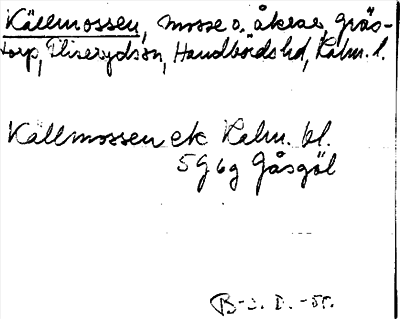 Källmossen, mosse o. åkrar, Gräs-
torp, Fliseryds sn, Handbörds hd, Kalm. l.
Källmossen ek Kalm. bl.
5G 6g Gåsgöl
B-s. D. -55.